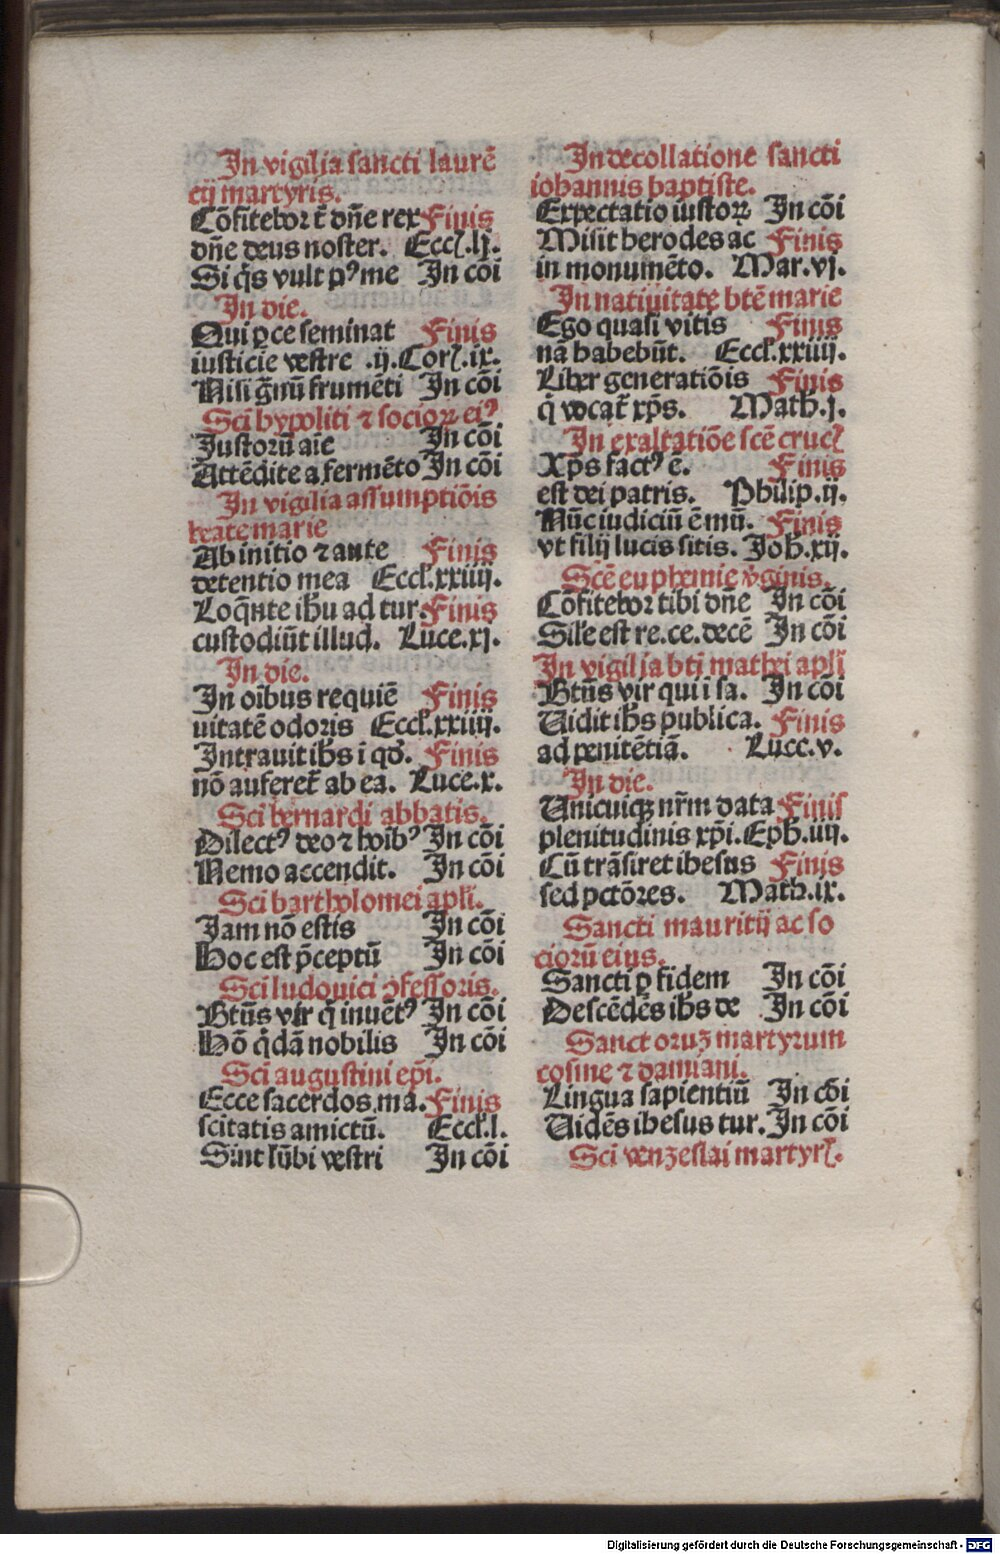 In vigilia sancti laurē
cij martyris.
Cōfitebor t̄ dn̄e rex Finis
dn̄e deus noster. Eccl̓.lj.
Si q̄s vult pꝰ me In cōi
In die.
Qui ꝑce seminat Finis
iusticie vestre .ij. Corꝭ.ix.
Nisi g̃nū frumēti In cōi
Sci hypoliti ⁊ socioꝝ eiꝰ
Iustorū aīe In cōi
Attēdite a fermēto In cōi
In vigilia assumptiōis
beate marie
Ab initio ⁊ ante Finis
detentio mea Eccl̓.xxiiij.
Loq̄nte ihu ad tur. Finis
custodiūt illud. Luce.xj.
In die.
In oībus requiē Finis
uitatē odoris Eccl̓.xxiiij.
Intrauit ihs ī qd̓. Finis
nō auferet̄ ab ea. Luce.x.
Sci bernardi abbatis.
Dilectꝰ deo ⁊ hoībꝰ In cōi
Nemo accendit. In cōi
Sci bartholomei apli.
Iam nō estis In cōi
Hoc est p̄ceptū In cōi
Sci ludouici ꝯfessoris.
Btūs vir q̄ inuētꝰ In cōi
Hō q̄dā nobilis In cōi
Sci augustini ep̄i.
Ecce sacerdos ma. Finis
scitatis amictū. Eccl̓.l.
Sint lūbi vestri In cōi
In decollatione sancti
iohannis baptiste.
Expectatio iustoꝝ In cōi
Misit herodes ac Finis
in monumēto. Mar.vj.
In natiuitate btē marie
Ego quasi vitis Finis
nā habebūt. Eccl̓.xxiiij.
Liber generatiōis Finis
q̄ vocat̄ xp̄s. Math.j.
In exaltatiōe scē crucꝭ
Xp̄s factꝰ ē. Finis
est dei patris. Philip.ij.
Nūc iudiciū ē mū. Finis
vt filij lucis sitis. Joh.xij.
Scē euphemie v̓ginis.
Cōfitebor tibi dn̄e In cōi
Sil̓e est re.ce.decē In cōi
In vigilia bti mathei apli
Btūs vir qui ī sa. In cōi
Uidit ihs publica. Finis
ad penitētiā. Lucc.v.
In die.
Unicuiqꝫ nr̄m data Finis
plenitudinis xp̄i. Eph.iiij.
Cū trāsiret ihesus Finis
sed pctōres. Math.ix.
Sancti mauritij ac so
ciorū eius.
Sancti ꝑ fidem In cōi
Descēdēs ihs de In cōi
Sanctoruꝫ martyrum
cosme ⁊ damiani.
Lingua sapientiū In cōi
Uidēs ihesus tur. In cōi
Sci venzeslai martyrꝭ.
Digitalisierung gefördert durch die Deutsche Forschungsgemeinschaft - DFG